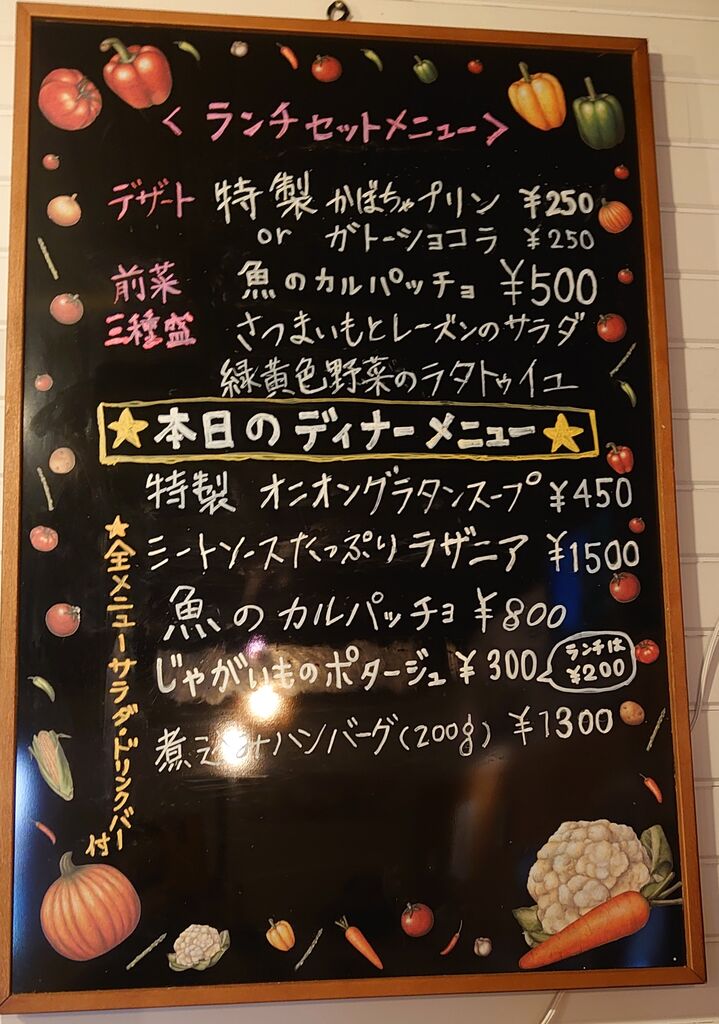 ＜ランチセットメニュー＞
デザート 特製かぼちゃプリン ¥250
or ガトーショコラ ¥250
前菜 魚のカルパッチョ ¥500
三種盛 さつまいもとレーズンのサラダ
緑黄色野菜のラタトゥイユ
★本日のディナーメニュー★
特製 オニオングラタンスープ ¥450
ミートソースたっぷりラザニア ¥1500
魚のカルパッチョ ¥800
じゃがいものポタージュ ¥300 ランチは
¥200
ハンバーグ(200g) ¥1300
★全メニューサラダ・ドリンクバー付